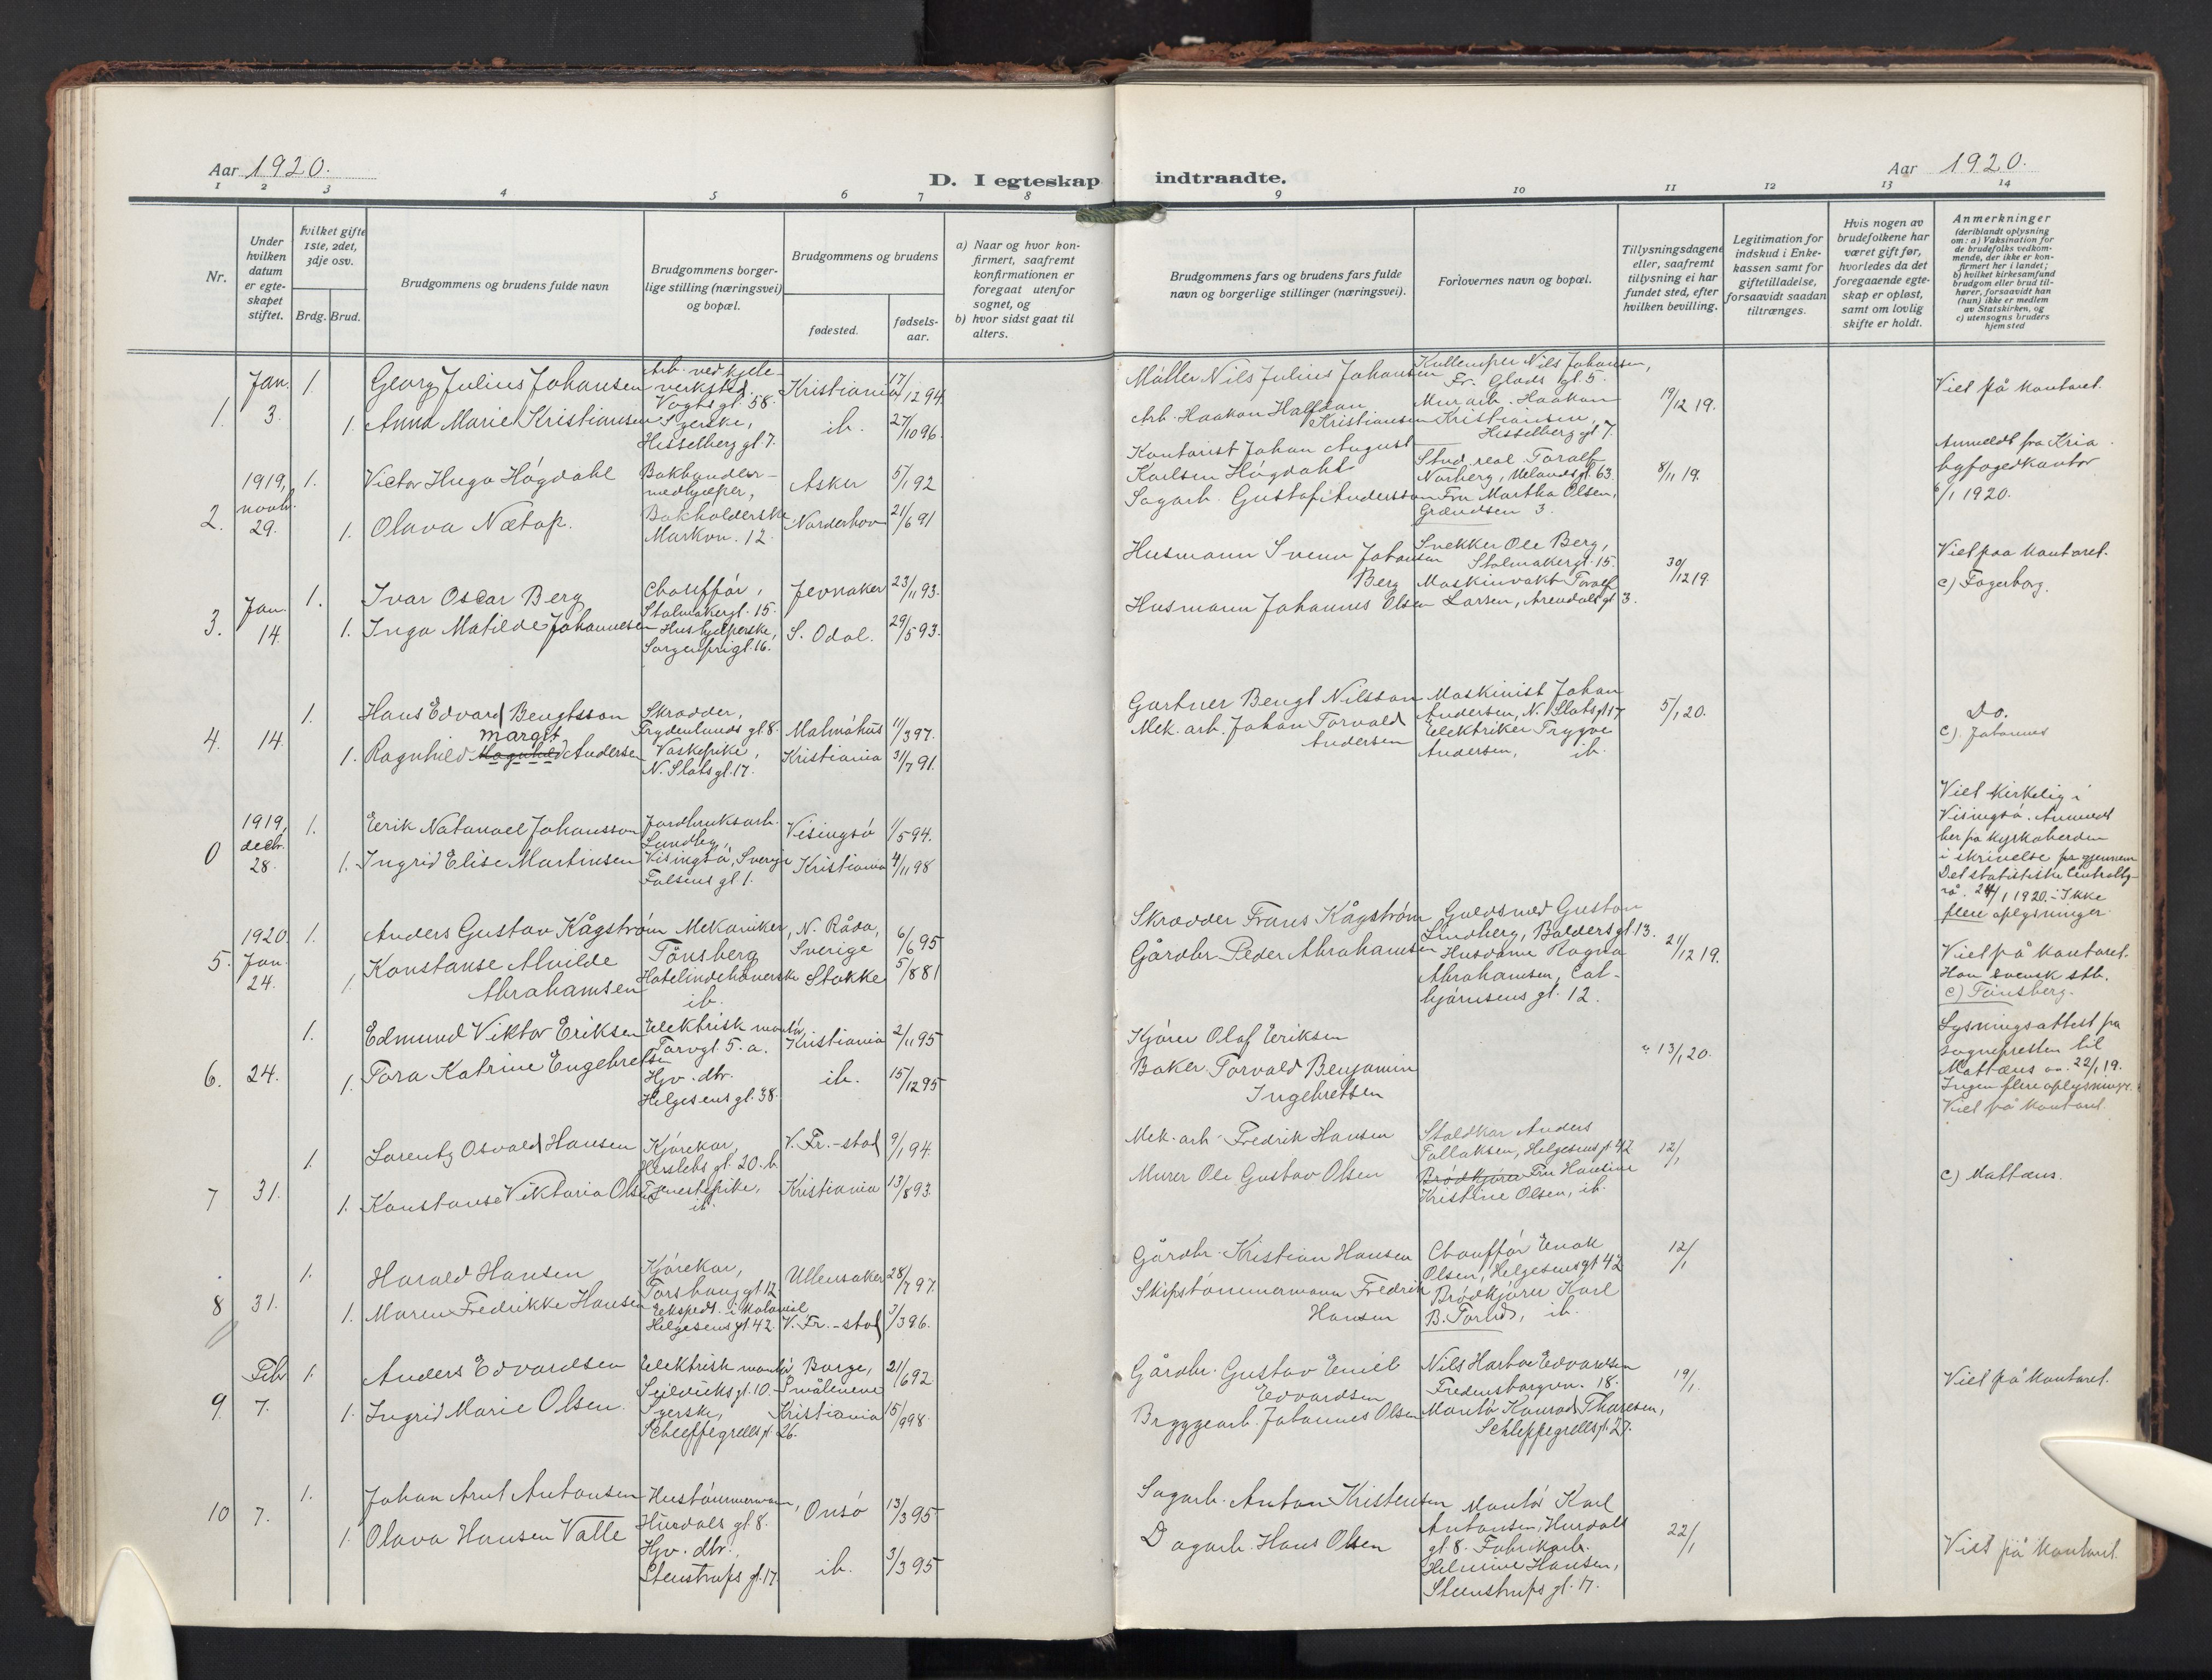 Aar 1920.
D. I egteskap indtraadte.
Aar 1920.
1 2 3 4 5 6 7 8 9 10 11 12 13 14
Nr.
Under
hvilken
datum
er egte-
skapet
stiftet.
Hvilket gifte
1ste, 2det,
3dje osv.
Brdg. Brud.
Brudgommens og brudens fulde navn
Brudgommens borger-
lige stilling (næringsvei)
og bopæl.
Brudgommens og brudens
fødested.
fødsels-
aar.
a) Naar og hvor kon-
firmert, saafremt
konfirmationen er
foregaat utenfor
sognet, og
b) hvor sidst gaat til
alters.
Brudgommens fars og brudens fars fulde
navn og borgerlige stillinger (næringsvei).
Forlovernes navn og bopæl.
Tillysningsdagene
eller, saafremt
tillysning ei har
fundet sted, efter
hvilken bevilling.
Legitimation for
indskud i Enke-
kassen samt for
giftetilladelse,
forsaavidt saadan
tiltrænges.
Hvis nogen av
brudefolkene har
været gift før,
hvorledes da det
foregaaende egte-
skap er opløst,
samt om lovlig
skifte er holdt.
Anmerkninger
(deriblandt oplysning
om: a) Vaksination for
de brudefolks vedkom-
mende, der ikke er kon-
firmert her i landet;
b) hvilket kirkesamfund
brudgom eller brud til-
hører, forsaavidt han
(hun) ikke er medlem
av Statskirken, og
c) utensogns bruders
hjemsted
1. Jan. 3.
1. Georg Julius Johansen
Arb. ved kjele-
verksted.
Vogtsgt. 58.
Kristiania
17/12 94.
1. Anna Marie Kristiansen
Syerske,
Hesselberggt. 7.
ib.
27/10 96.
Møller Nils Julius Johansen
Arb. Haakon Halfdan
Kristiansen
Nils Johansen,
Fr. Glads gt. 5.
Murarb. Haakon
Kristiansen,
Hesselberggt 7.
19/12 19.
Viet på kontoret.
2. 1919, novb. 29.
1. Victor Hugo Høgdahl
Bokhander-
medhjelper,
Asker
5/1 92
1. Olava Nætop.
Bokholderske
Markvn. 12.
Norderhov
21/6 91
Kontorist Johan August
Karlsen Høgdahl
Sagarb. Gustaf Andersson
Stud. real. Toralf
Norberg, Uelandsgt. 63.
Fru Martha Olsen,
Grændsen 3.
8/11 19.
Anmeldt fra Kria
byfogedkontor
6/1 1920.
3. Jan. 14.
1. Ivar Oscar Berg
Chauffør,
Stolmakergt. 15.
Jevnaker
23/11 93.
1. Inga Matilde Johannesen
Hushjelperske,
Sorgenfrigt. 16.
S. Odal.
29/5 93.
Husmann Svenn Johansen
Berg
Husmann Johannes Olsen
Snekker Ole Berg,
Stolmakergt. 15.
Maskinvakt Toralf
Larsen, Arendalsgt 3.
30/12 19.
Viet paa kontoret.
c) Fagerborg.
4. 14.
1. Hans Edvard Bengtsson
Skrædder,
Frydenlundsgt 8.
Malmøhus
11/3 97.
Margit
1. Ragnhild Magnhild Andersen
Vaskepike,
N. Slotsgt. 17.
Kristiania
31/7 91.
Gartner Bengt Nilsson
Mek. arb. Johan Torvald
Andersen
Maskinist Johan
Andersen, N. Slotsgt 17
Elektriker Trygve
Andersen, ib.
5/1 20.
Do.
c) Johannes
0 1919, decbr. 28.
1. Erik Natanael Johansson
Jordbruksarb.
Lundby,
Visingsö, Sverje
Visingsö
1/5 94.
1. Ingrid Elise Martinsen
Falsens gt 1.
Kristiania
4/11 98
Viet kirkelig i
Visingsö. Anmeldt
her fra kyrkoherden
i skrivelse gjennem
Det statistiske Centralby-
rå. 24/1 1920. - Ikke
flere oplysninger.
5. 1920 Jan. 24.
1. Anders Gustav Kågström
Mekaniker,
Tönsberg
N. Råda,
Sverige
6/6 95
1. Konstanse Alvilde
Abrahamsen
Hotelindehaverske
ib.
Stokke
5/8 81
Skrædder Frans Kågström
Gårdbr. Peder Abrahamsen
Guldsmed Gustav
Lindberg, Boldersgt. 13.
Husdame Ragna
Abrahamsen, Cal-
bjørnsens gt. 12.
21/12 19.
Viet på kontoret.
Han svensk stb.
c) Tönsberg.
6. 24.
1. Edmund Viktor Eriksen
Elektrisk montør
Torvgt 5. a.
Kristiania
2/11 95
1. Tora Katrine Engebretsen
Hjv. dtr.
Helgesens gt. 38.
ib.
15/12 95
Kjører Olaf Eriksen
Baker Torvald Benjamin
Ingebretsen
13/1 20.
Lysningsattest fra
sognepresten til
Mattæus 22/1 19.
Ingen flere oplysninger.
Viet på kontoret.
7 31.
1. Lorentz Osvald Hansen
Kjørekar,
Herslebs gt. 20. b.
V. Fr.-stad
9/1 94.
1. Konstanse Viktoria Olsen
Tjenestepike,
ib.
Kristiania
13/8 93.
Mek. arb. Fredrik Hansen
Murer Ole Gustav Olsen
Staldkar Anders
Tollaksen, Helgesensgt 42
Brödkjører Fru Hansine
Kristine Olsen, ib.
12/1
c) Mattæus.
8 31.
1. Harald Hansen
Kjørekar,
Torshauggt 12
Ullensaker
28/7 97.
1. Maren Fredrikke Hansen
Ekspedt. i kolonial
Helgesens gt. 42.
V. Fr.-stad
3/3 96.
Gårdbr. Kristian Hansen
Skipstömmermann Fredrik
Hansen
Chauffør Enok
Olsen, Helgesensgt 42
Brødkjører Karl
B. Torud, ib.
12/1
9. Febr 7.
1. Anders Edvardsen
Elektrisk montør
Seilduksgt. 10.
Borge,
Smålenene
21/6 92
1. Ingrid Marie Olsen.
Syerske,
Schleppegrellsgt. 26.
Kristiania
15/9 98.
Gårdbr. Gustav Emil
Edvardsen
Bryggearb. Johannes Olsen
Nils Harbo Edvardsen
Fredensborgvn. 18.
Montör Konrad Thoresen,
Schleppegrellsgt. 27.
19/1
Viet på kontoret.
10 7.
1. Johan Arnt Antonsen
Hustömmermann,
Hurdals gt. 8.
Onsö
13/3 95
1. Olava Hansen Valle
Hjv. dtr.,
Stenstrups gt. 17
ib.
3/3 95
Sagarb. Anton Kristensen
Dagarb. Hans Olsen
Montør Karl
Antonsen, Hurdals
gt. 8. Fabrikarb.
Helmine Hansen,
Steenstrups gt. 17.
22/1
Viet på kontoret.